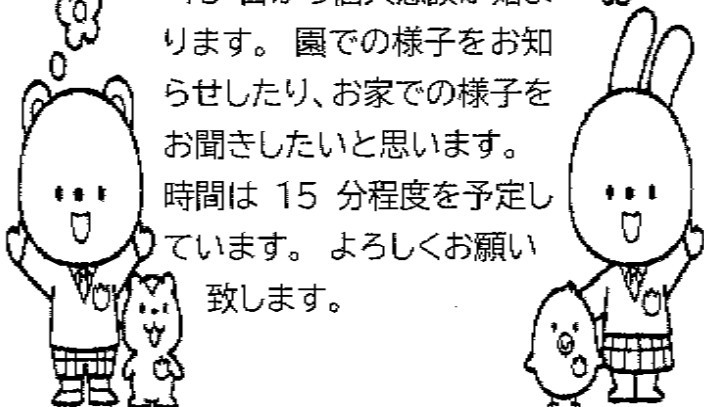 ります。 園での様子をお知
らせしたり、お家での様子を
お聞きしたいと思います。
時間は 15 分程度を予定し
ています。 よろしくお願い
致します。